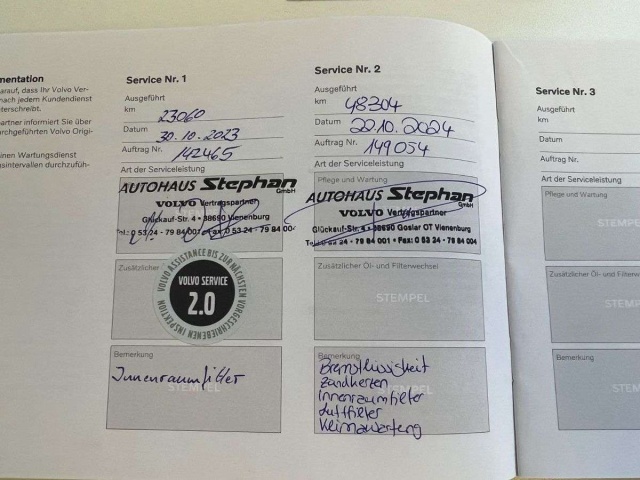 mentation
arauf, dass Ihr Volvo Ver-
nach jedem Kundendienst
terschreibt.
partner informiert Sie über
rchgeführten Volvo Origi-
inen Wartungsdienst
nsintervallen durchzufüh-
Service Nr. 1
Ausgeführt
km 23060
Datum 30.10.2023
Auftrag Nr. 142465
Art der Serviceleistung
AUTOHAUS Stephan GmbH
VOLVO Vertragspartner
Glückauf-Str. 4 • 38690 Vienenburg
Tel.: 0 53 24 - 79 84 001 • Fax: 0 53 24 - 79 84 004
Zusätzlicher
VOLVO ASSISTANCE BIS ZUR NÄCHSTEN VORGESCHRIEBENEN INSPEKTION
VOLVO SERVICE
2.0
Bemerkung
Innenraumfilter
STEMPEL
Service Nr. 2
Ausgeführt
km 48304
Datum 22.10.2024
Auftrag Nr. 149054
Art der Serviceleistung
Pflege und Wartung
AUTOHAUS Stephan GmbH
VOLVO Vertragspartner
Glückauf-Str. 4 • 38690 Goslar OT Vienenburg
Tel.: 0 53 24 - 79 84 001 • Fax: 0 53 24 - 79 84 004
Zusätzlicher Öl- und Filterwechsel
STEMPEL
Bemerkung
Bremsflüssigkeit
Zündkerzen
Innenraumfilter
Luftfilter
STEMPEL
Klimawartung
Service Nr. 3
Ausgeführt
km
Datum
Auftrag Nr.
Art der Serviceleistung
Pflege und Wartung
STEM
Zusätzlicher Öl- und Filterw
STEM
Bemerkung
STEM